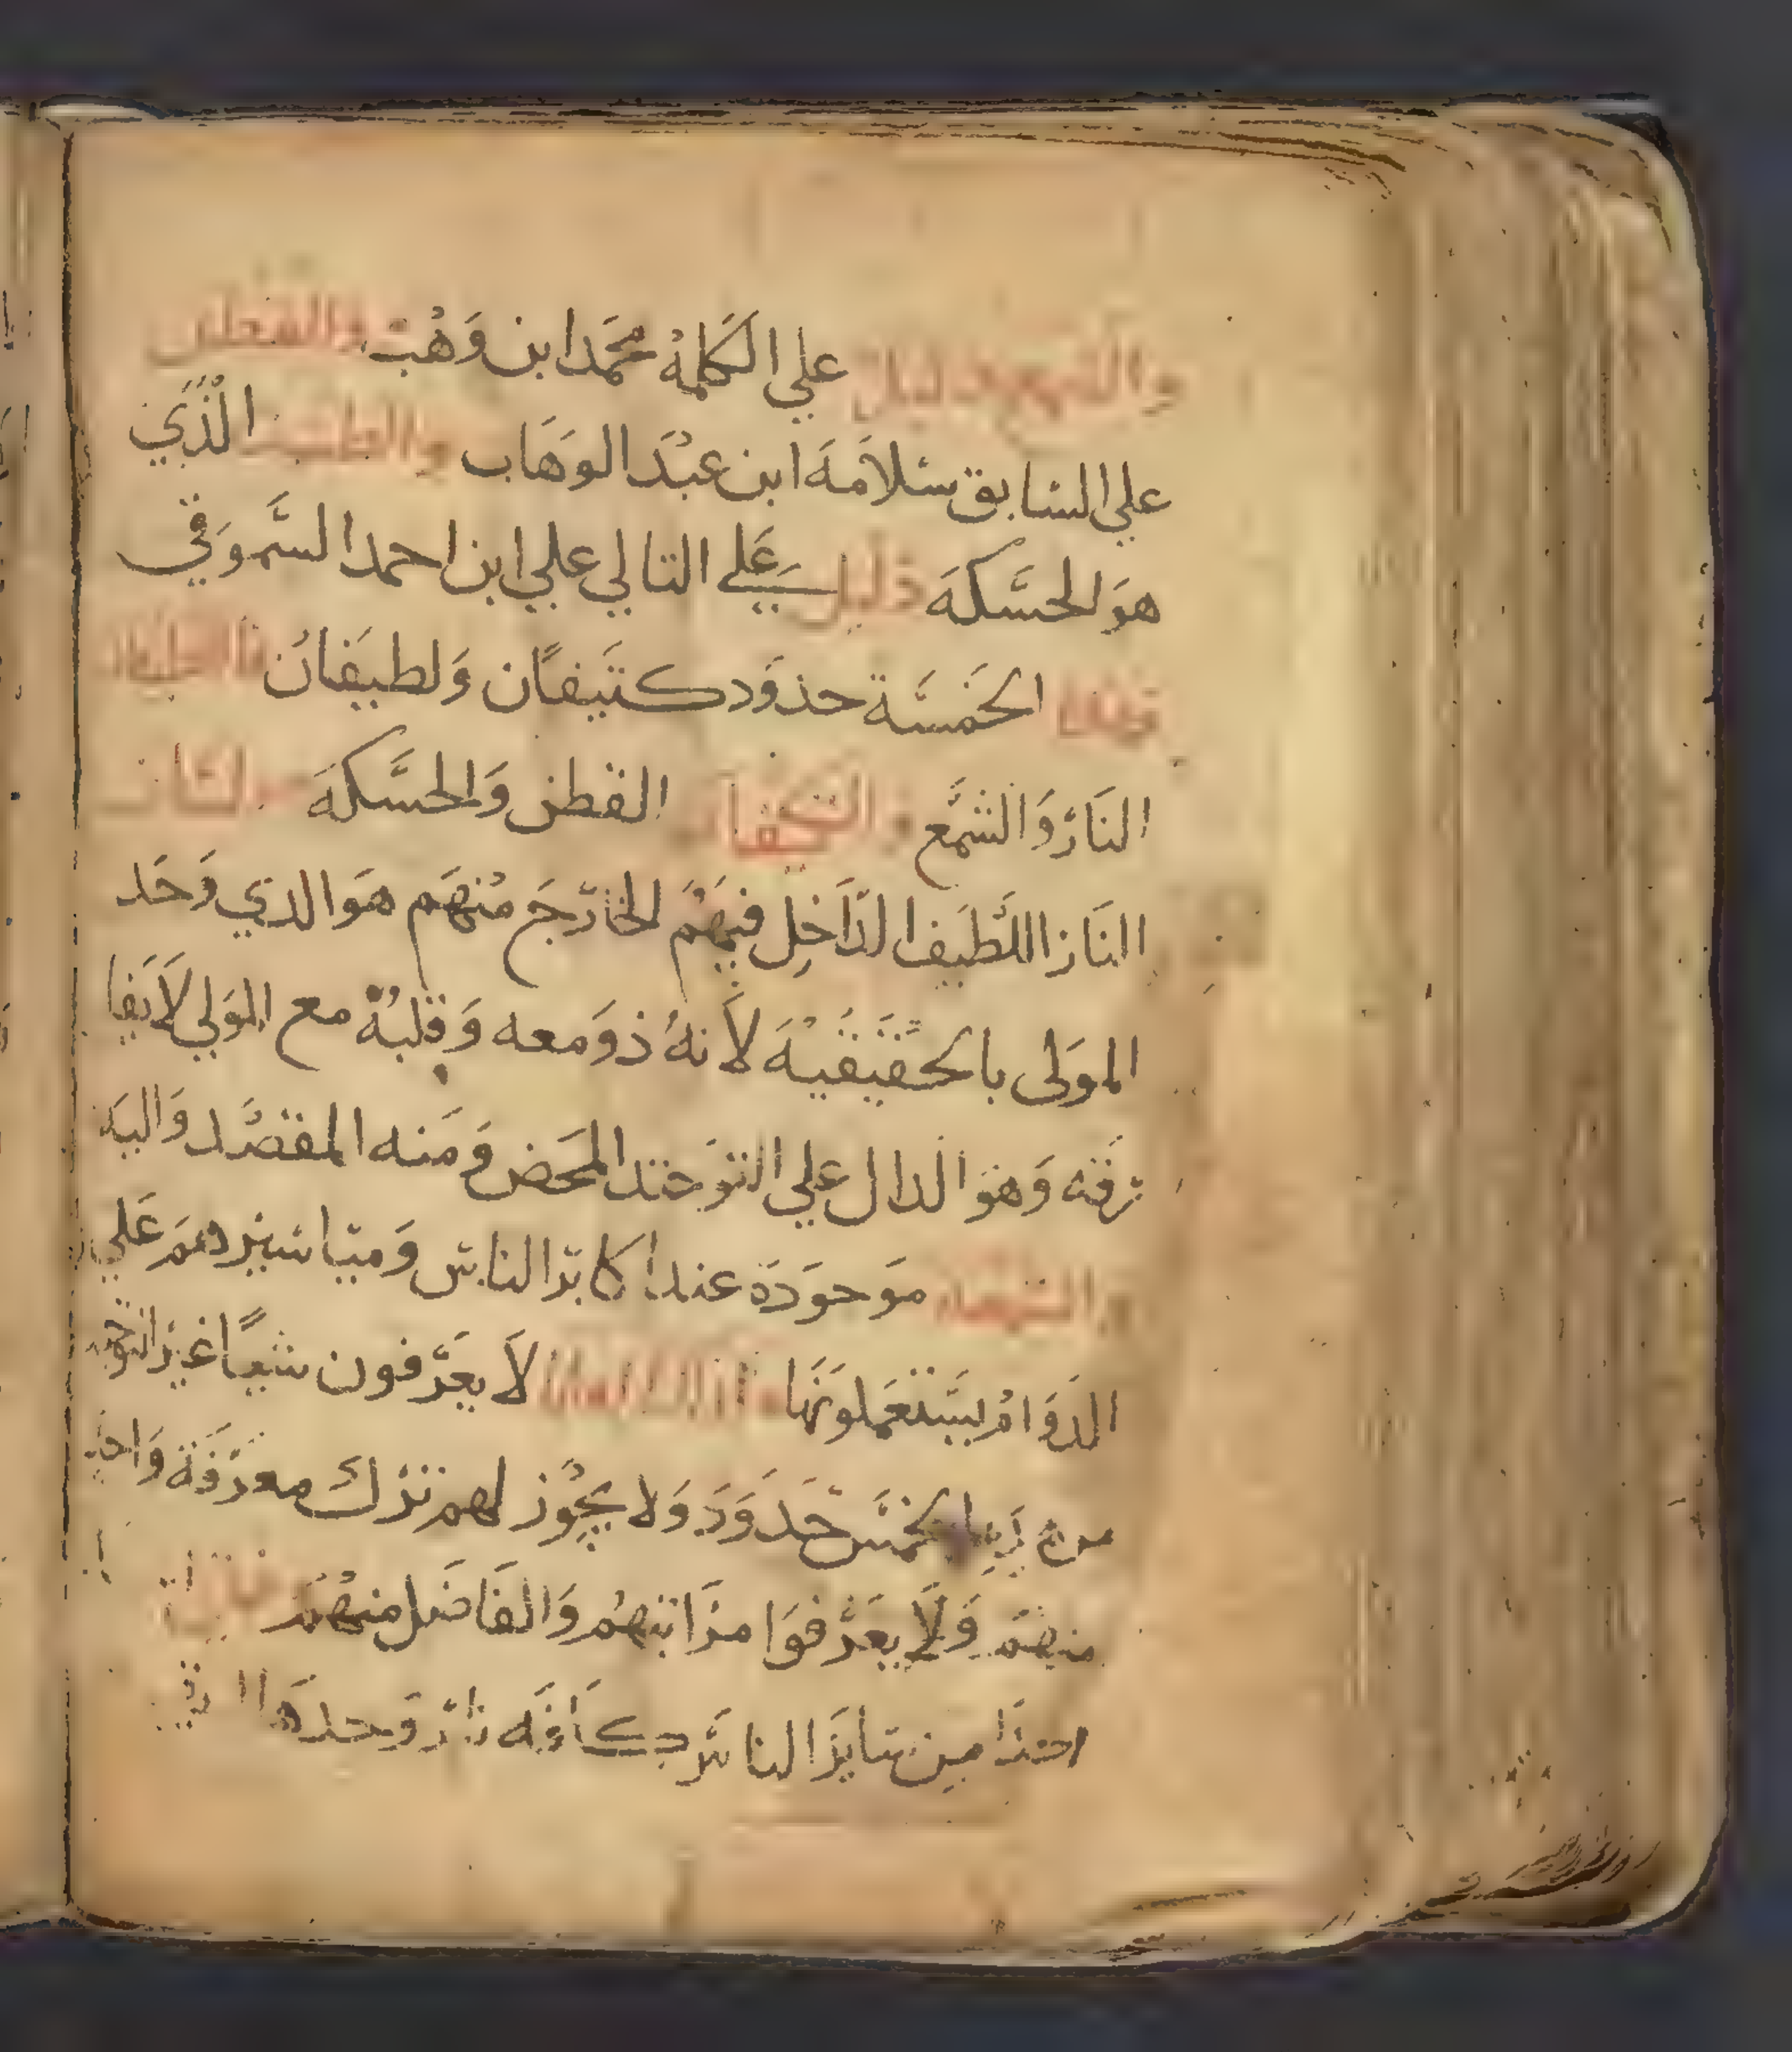 والشمع دليل علي الكلمة محمد ابن وهب والقطن
علي السابق سلامه ابن عبد الوهاب والطست الذي
هو الحسكه دليل علي التالي علي ابن احمد السموقي
فهذه الخمسة حدود كتيفان ولطيفان فاللطيفان
النار والشمع والتكيفان القطن والحسكه
الناز اللطيف الداخل فيهم الخارج منهم هو الدي وحد
المولى بالحقيقيه لانه ذو معه وقلبه مع المولي لا يفا
رقه وهو الدال علي التوحيد المحض ومنه المقصد واليه
والشمعه موجودة عند اكابر الناس ومياسيرهم علي
الدوام يستعملونها لا يعرفون شيا غير التوحيد
الخمس حدود ولا يجوز لهم ترك معرفة واحد
منهم ولا يعرفوا مراتبهم والفاضل منهم
احدا من ساير الناس كافه نار وحدها